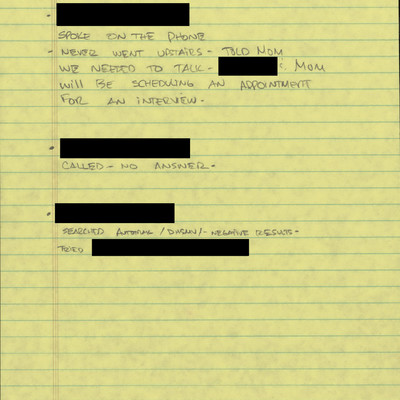 SPOKE ON THE PHONE
- NEVER WENT UPSTAIRS - TOLD MOM
WE NEEDED TO TALK - & MOM
WILL BE SCHEDULING AN APPOINTMENT
FOR AN INTERVIEW.
CALLED - NO ANSWER -
SEARCHED / - NEGATIVE RESULTS -
TRIED